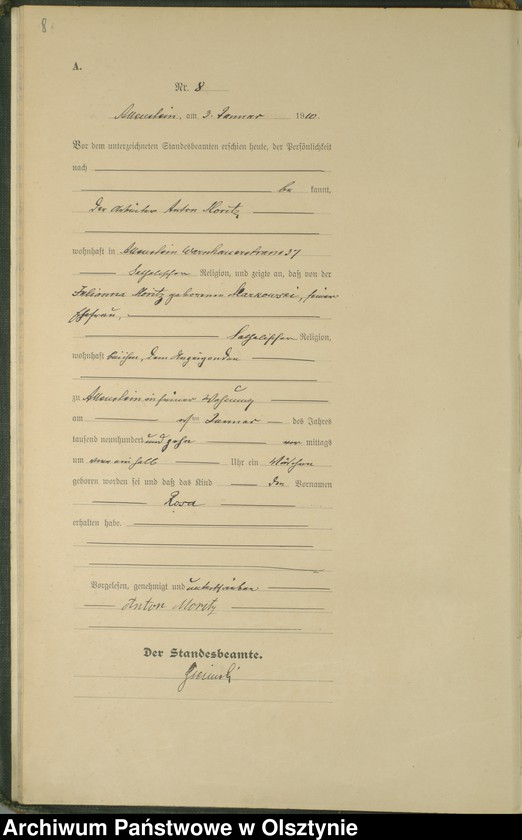 8
A.
Nr. 8
Allenstein, am 3. Januar 1910.
Vor dem unterzeichneten Standesbeamten erschien heute, der Persönlichkeit
nach
be kannt,
der Arbeiter Anton Moritz
wohnhaft in Allenstein 37
katholischer Religion, und zeigte an, daß von der
Julianna Moritz geborenen Markowski, seiner
Ehefrau,
katholischer Religion,
wohnhaft bei ihm, dem Anzeigenden
zu Allenstein in seiner Wohnung
am Januar des Jahres
tausend neunhundert und zehn vor mittags
um Uhr ein Mädchen
geboren worden sei und daß das Kind den Vornamen
Rosa
erhalten habe.
Vorgelesen, genehmigt und unterschrieben
Anton Moritz
Der Standesbeamte.
Archiwum Państwowe w Olsztynie